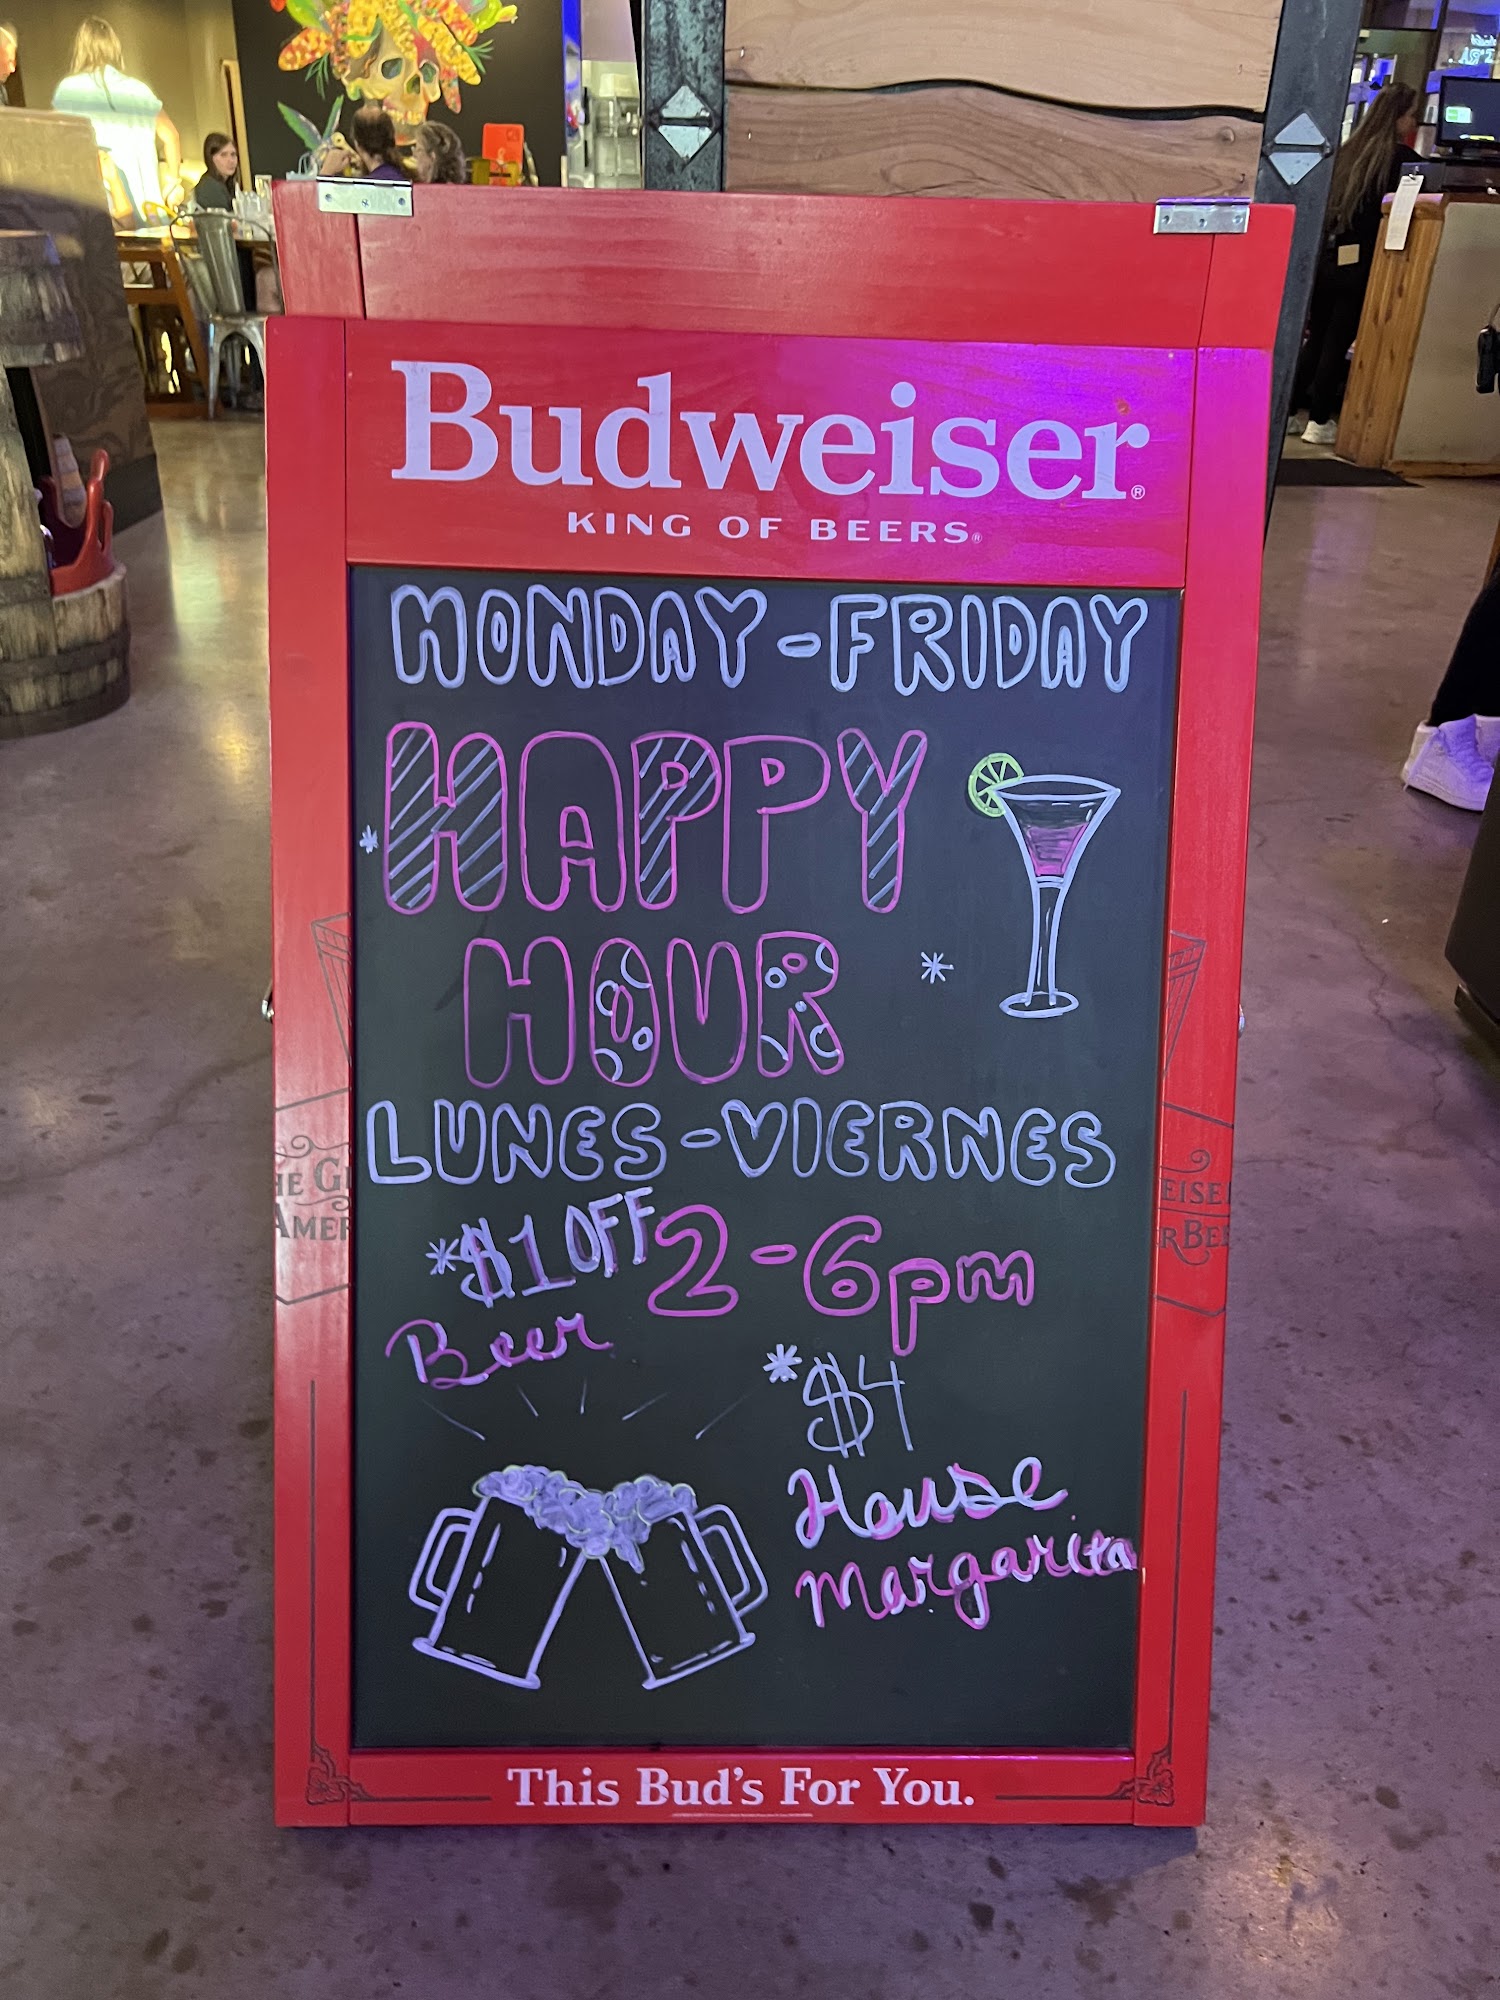 Budweiser®
KING OF BEERS®
MONDAY-FRIDAY
HAPPY
HOUR
LUNES-VIERNES
*$1 OFF
Beer
2-6pm
*$4
House
Margarita
This Bud's For You.